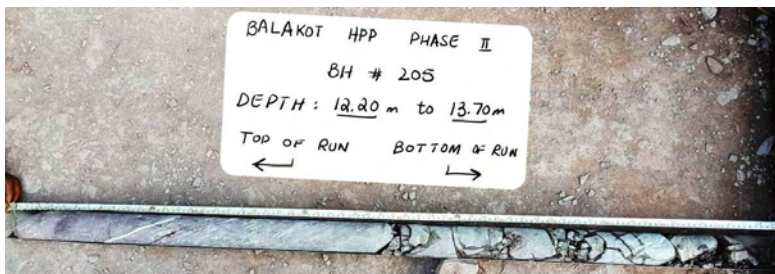 BALAKOT HPP PHASE II
BH # 205
DEPTH : 12.20 m to 13.70m
TOP OF RUN BOTTOM OF RUN